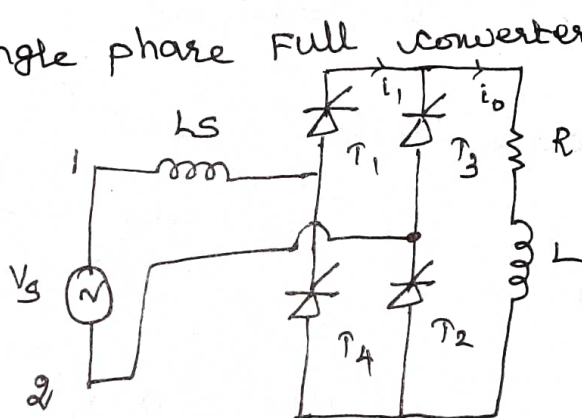 ngle phase Full converter
i₁ i₀
LS
1 T₁ T₃ R
Vs L
T₄ T₂
2